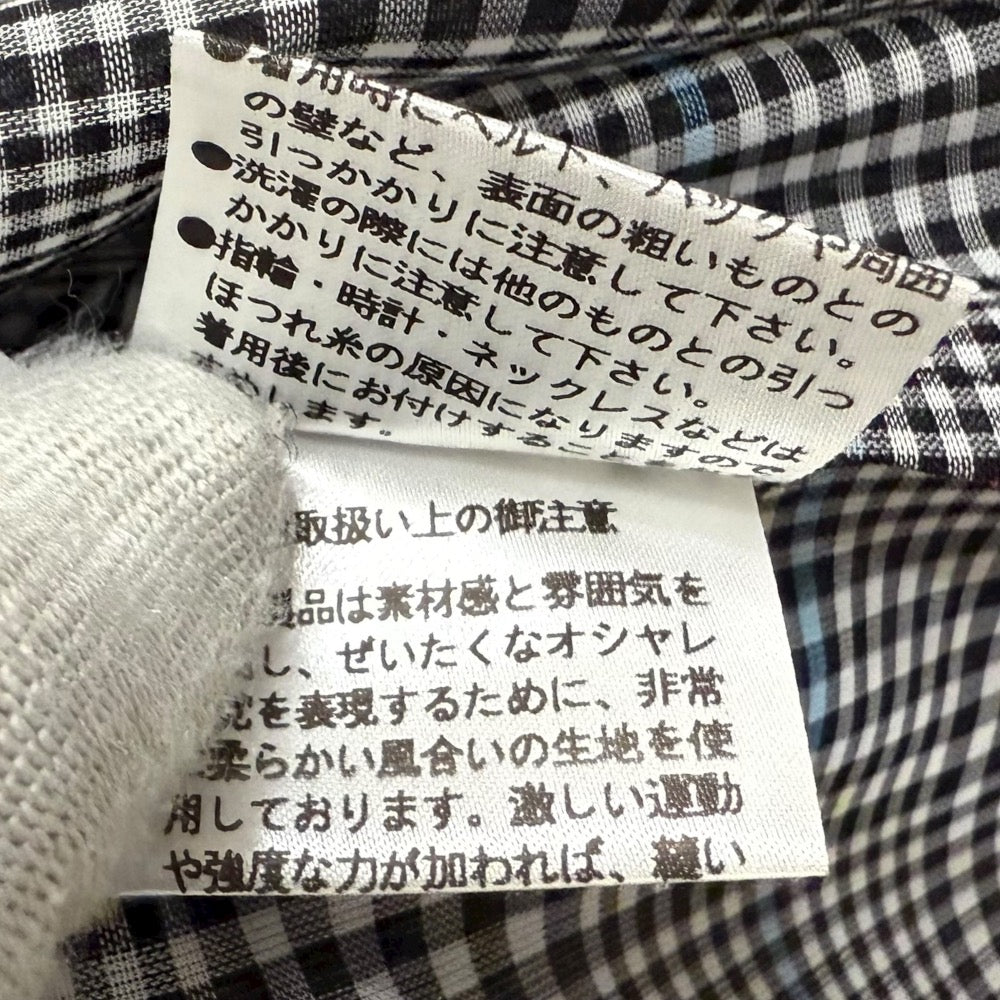 ●着用時にベルト、バッグや周囲
の壁など、表面の粗いものとの
引っかかりに注意して下さい。
●洗濯の際には他のものとの引っ
かかりに注意して下さい。
●指輪・時計・ネックレスなどは
ほつれ糸の原因になりますので
着用後にお付けすること
します。
取扱い上の御注意
品は素材感と雰囲気を
し、ぜいたくなオシャレ
を表現するために、非常
柔らかい風合いの生地を使
用しております。激しい運動
や強度な力が加われば、縫い